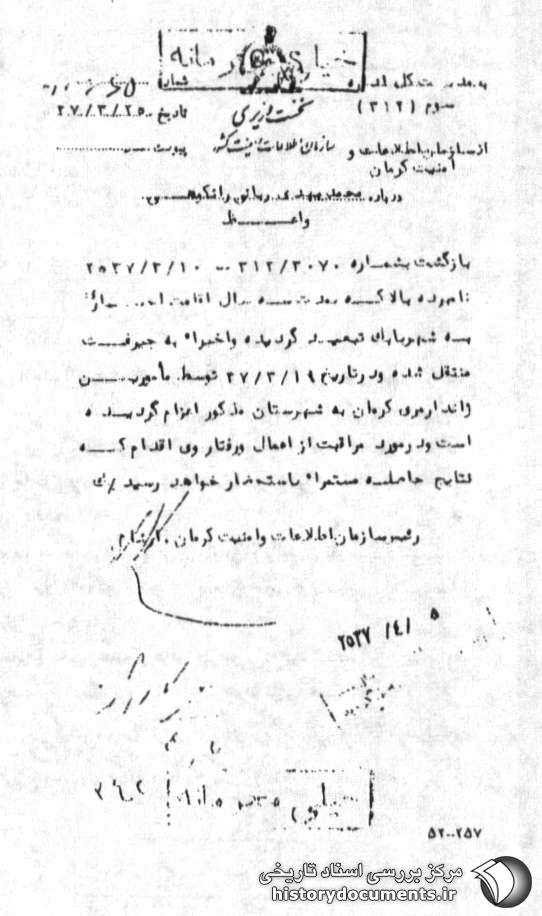 خیلی محرمانه
به مدیریت کل اداره سوم (۳۱۲)
شماره
تاریخ ۲۷/۳/۲۵
پیوست
نخست وزیری
سازمان اطلاعات و امنیت کشور
از سازمان اطلاعات و امنیت کرمان
درباره محمدمهدی ربانی رانکوهی
واعظ
بازگشت بشماره ۳۱۲/۳۰۷۰ – ۲۵۳۷/۳/۱۰
نامبرده بالا که مدت سه سال اقامت اجباری
به شهربابک تبعید گردیده واخیراً به جیرفت
منتقل شده ودرتاریخ ۲۷/۳/۱۹ توسط مأمورین
ژاندارمری کرمان به شهرستان مذکور اعزام گردیده
است ودرمورد مراقبت از اعمال ورفتار وی اقدام که
نتایج حاصله مستمراً باستحضار خواهد رسید
رئیس سازمان اطلاعات وامنیت کرمان
۲۵۳۷/۴/۵
خیلی محرمانه
۵۲۰۰۲۵۷
مرکز بررسی اسناد تاریخی
historydocuments.ir